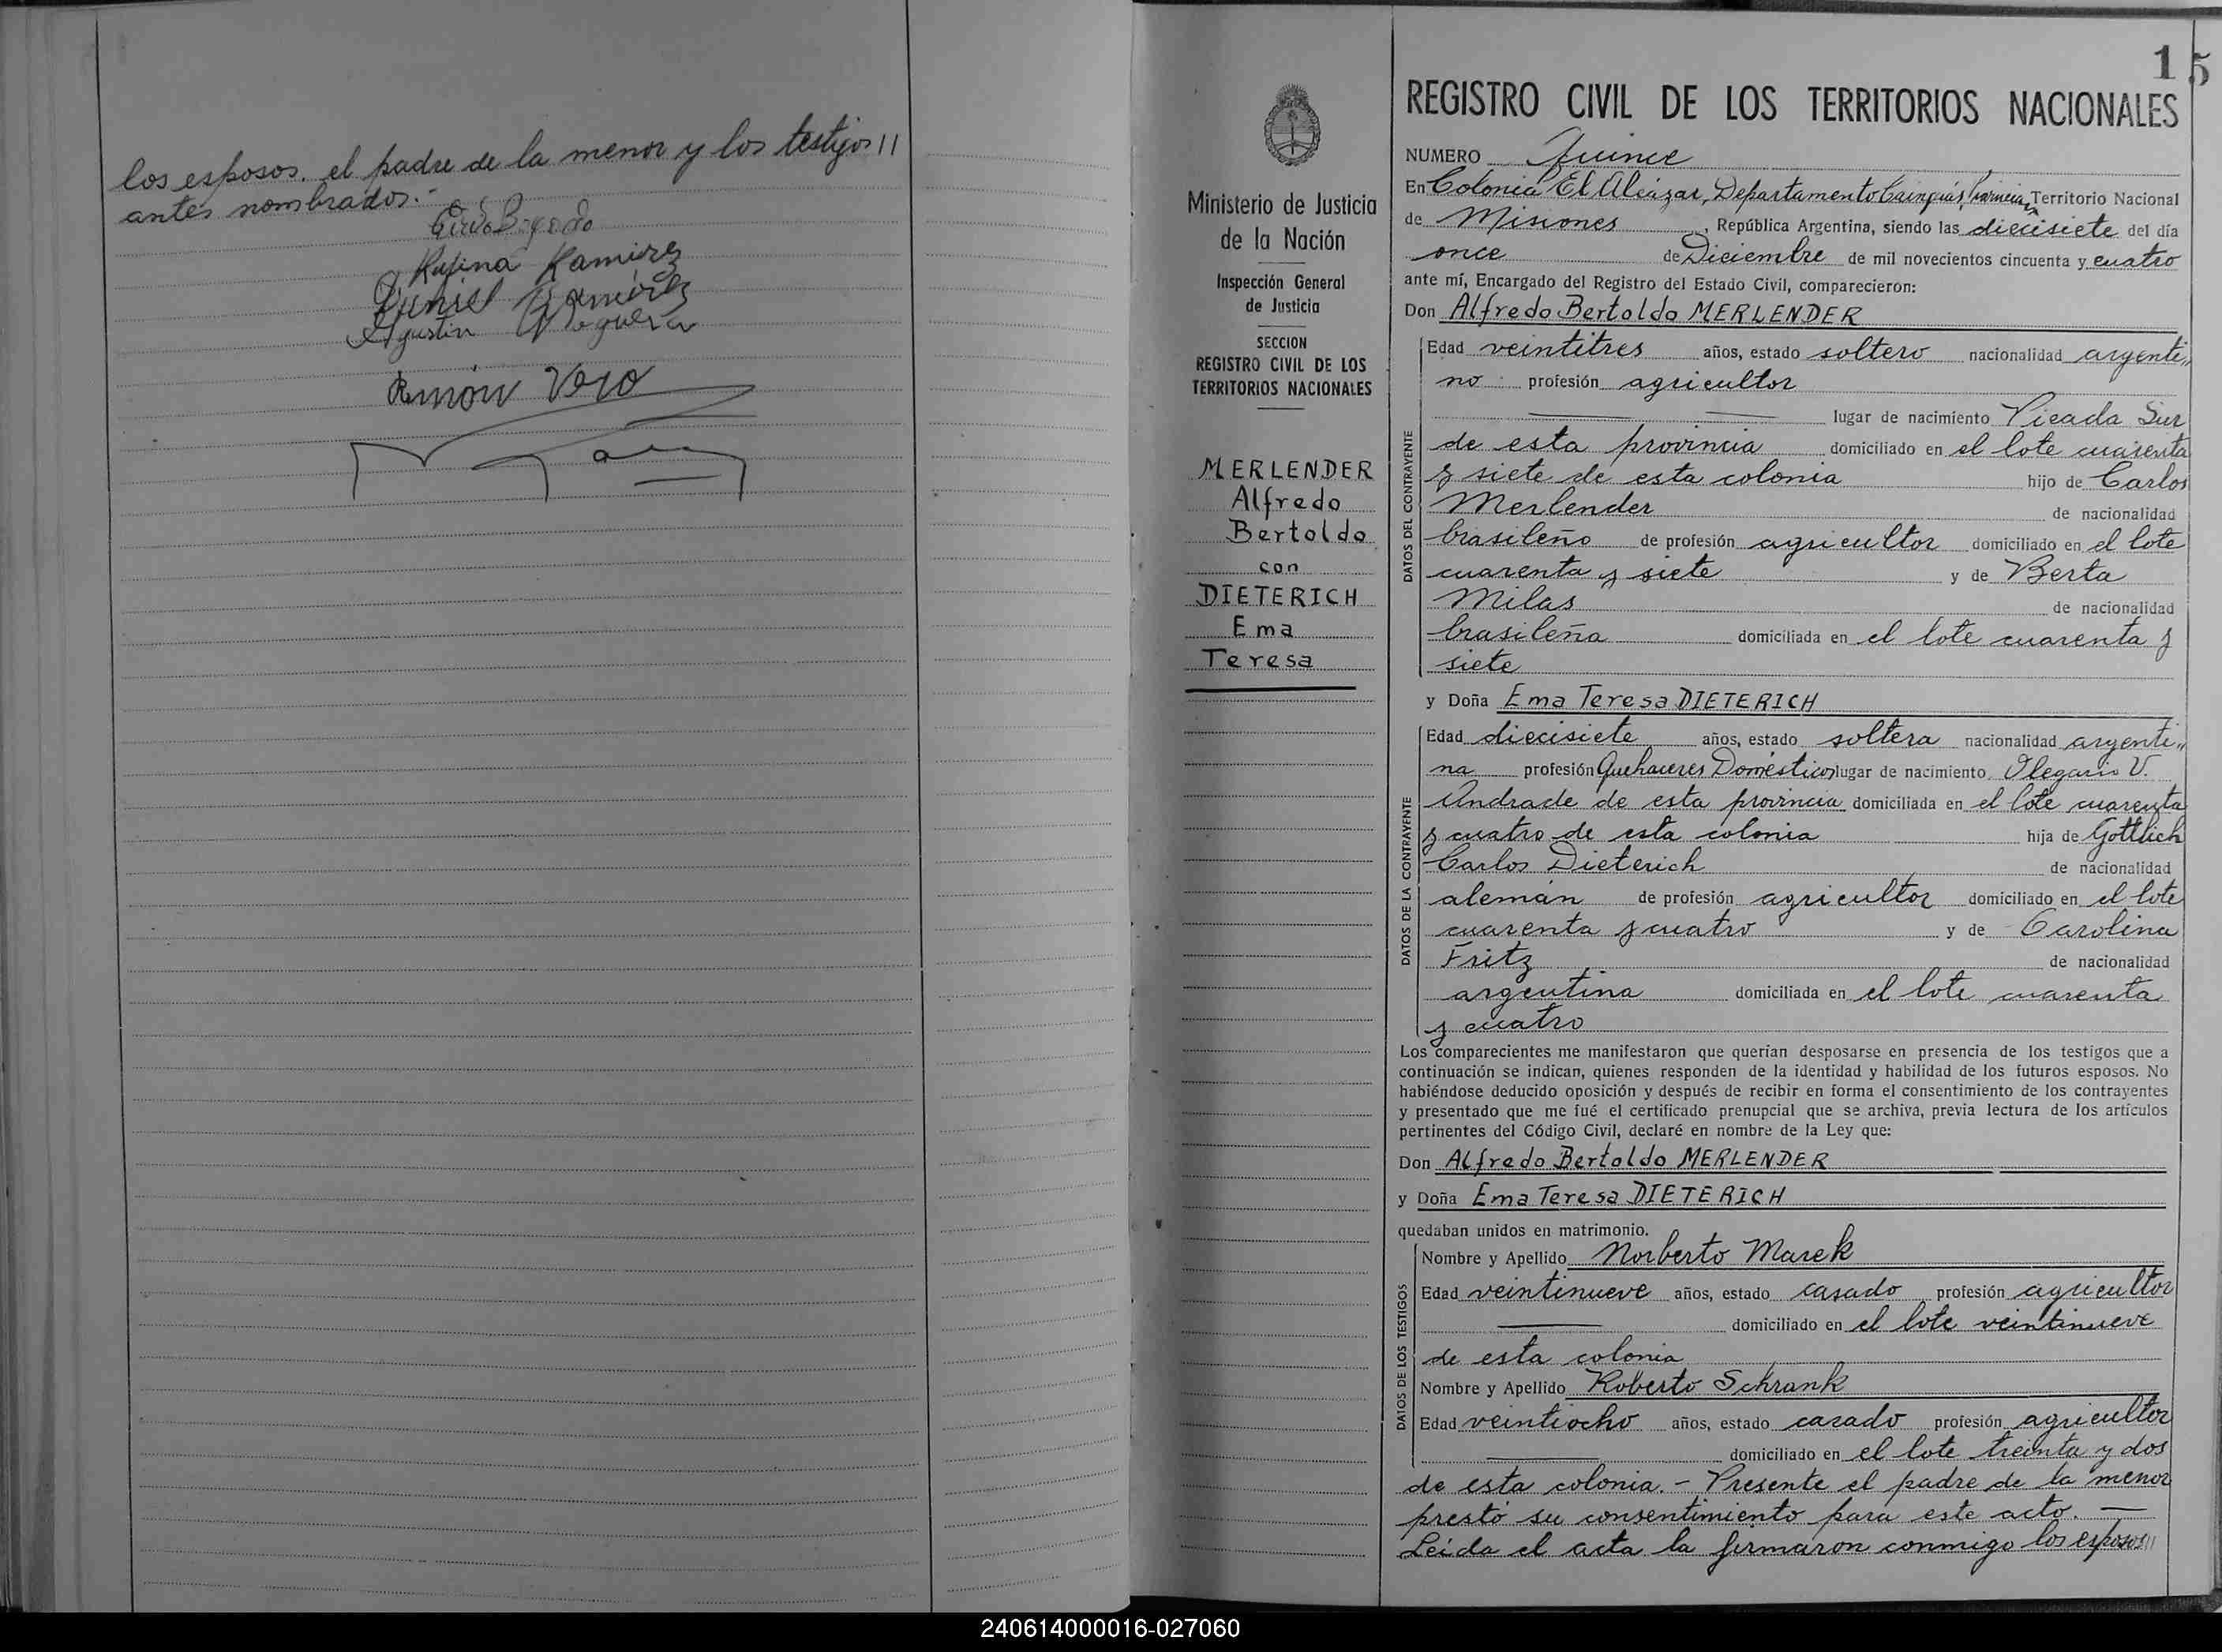 los esposos. el padre de la menor y los testigos //
antes nombrados.-
Rufina Ramirez
Daniel Ramirez
Agustin
Ramón Vero
15
REGISTRO CIVIL DE LOS TERRITORIOS NACIONALES
NUMERO Quince
En Colonia El Alcázar, Departamento Cainguás, Provincia Territorio Nacional
de Misiones, República Argentina, siendo las diecisiete del día
once de Diciembre de mil novecientos cincuenta y cuatro
ante mí, Encargado del Registro del Estado Civil, comparecieron:
Don Alfredo Bertoldo MERLENDER
Ministerio de Justicia
de la Nación
Inspección General
de Justicia
SECCION
REGISTRO CIVIL DE LOS
TERRITORIOS NACIONALES
MERLENDER
Alfredo
Bertoldo
con
DIETERICH
Ema
Teresa
DATOS DEL CONTRAYENTE
Edad veintitres años, estado soltero nacionalidad argenti,,
no profesión agricultor
lugar de nacimiento Picada Sur
de esta provincia domiciliado en el lote cuarenta
y siete de esta colonia hijo de Carlos
Merlender de nacionalidad
brasileño de profesión agricultor domiciliado en el lote
cuarenta y siete y de Berta
Milas de nacionalidad
brasileña domiciliada en el lote cuarenta y
siete
y Doña Ema Teresa DIETERICH
DATOS DE LA CONTRAYENTE
Edad diecisiete años, estado soltera nacionalidad argenti,,
na profesión Quehaceres Domésticos lugar de nacimiento Olegario V.
Andrade de esta provincia domiciliada en el lote cuarenta
y cuatro de esta colonia hija de Gottlich
Carlos Dieterich de nacionalidad
alemán de profesión agricultor domiciliado en el lote
cuarenta y cuatro y de Carolina
Fritz de nacionalidad
argentina domiciliada en el lote cuarenta
y cuatro
Los comparecientes me manifestaron que querían desposarse en presencia de los testigos que a
continuación se indican, quienes responden de la identidad y habilidad de los futuros esposos. No
habiéndose deducido oposición y después de recibir en forma el consentimiento de los contrayentes
y presentado que me fué el certificado prenupcial que se archiva, previa lectura de los artículos
pertinentes del Código Civil, declaré en nombre de la Ley que:
Don Alfredo Bertoldo MERLENDER
y Doña Ema Teresa DIETERICH
quedaban unidos en matrimonio.
DATOS DE LOS TESTIGOS
Nombre y Apellido Norberto Marek
Edad veintinueve años, estado casado profesión agricultor
domiciliado en el lote veintinueve
de esta colonia
Nombre y Apellido Roberto Schrank
Edad veintiocho años, estado casado profesión agricultor
domiciliado en el lote treinta y dos
de esta colonia.- Presente el padre de la menor
prestó su consentimiento para este acto.
Leida el acta la firmaron conmigo los esposos //
240614000016-027060